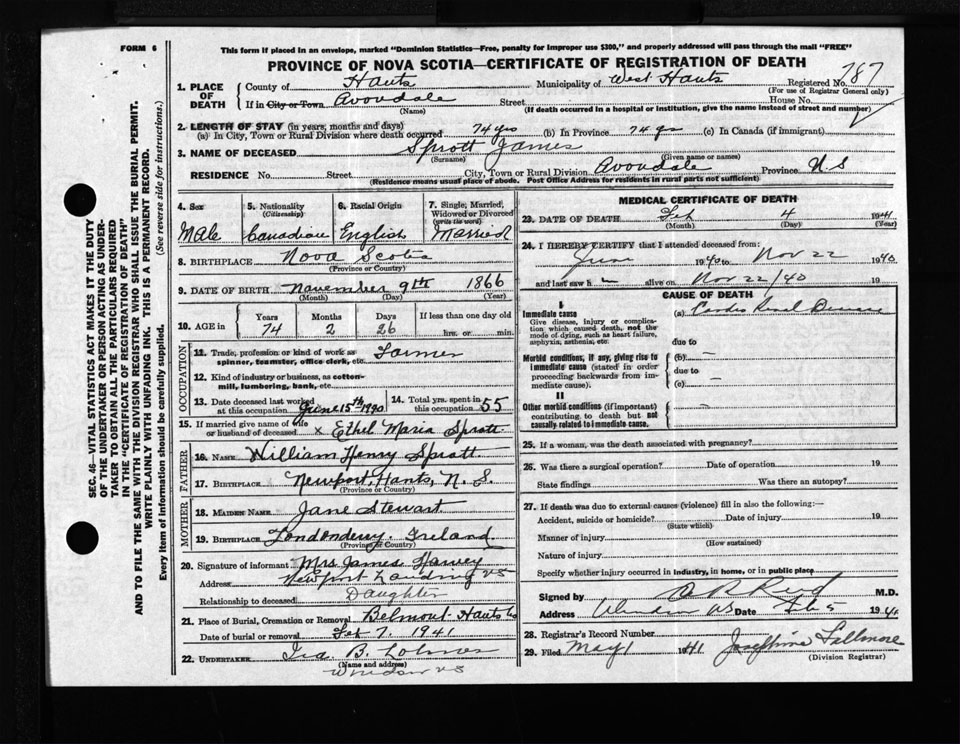 FORM 6
This form if placed in an envelope, marked "Dominion Statistics—Free, penalty for improper use $300," and properly addressed will pass through the mail "FREE"
PROVINCE OF NOVA SCOTIA—CERTIFICATE OF REGISTRATION OF DEATH
787
1. PLACE OF DEATH
County of Hants Municipality of West Hants Registered No.
(For use of Registrar General only)
If in City or Town Avondale Street House No.
(Name) (If death occurred in a hospital or institution, give the name instead of street and number)
2. LENGTH OF STAY (in years, months and days)
(a) In City, Town or Rural Division where death occurred 74 yrs (b) In Province 74 yrs (c) In Canada (if immigrant)
3. NAME OF DECEASED Sprott James
(Surname) (Given name or names)
RESIDENCE No. Street City, Town or Rural Division Avondale Province N S
(Residence means usual place of abode. Post Office Address for residents in rural parts not sufficient)
4. Sex
Male
5. Nationality
(Citizenship)
Canadian
6. Racial Origin
English
7. Single, Married, Widowed or Divorced
(write the word)
Married
8. BIRTHPLACE Nova Scotia
(Province or Country)
9. DATE OF BIRTH November 9th 1866
(Month) (Day) (Year)
10. AGE in
Years Months Days If less than one day old
74 2 26 hrs. or min.
OCCUPATION
11. Trade, profession or kind of work as Farmer
spinner, teamster, office clerk, etc.
12. Kind of industry or business, as cotton-
mill, lumbering, bank, etc.
13. Date deceased last worked
at this occupation June 15th 1940
14. Total yrs. spent in
this occupation 55
15. If married give name of wife
or husband of deceased x Ethel Maria Sprott
FATHER
16. NAME William Henry Sprott
17. BIRTHPLACE Newport, Hants, N. S.
(Province or Country)
MOTHER
18. MAIDEN NAME Jane Stewart
19. BIRTHPLACE Londonderry, Ireland
(Province or Country)
20. Signature of informant Mrs James Harvey
Address Newport Landing NS
Relationship to deceased Daughter
21. Place of Burial, Cremation or Removal Belmont Hants Co
Date of burial or removal Feb 7. 1941
22. UNDERTAKER Ira B.
(Name and address)
Windsor NS
MEDICAL CERTIFICATE OF DEATH
23. DATE OF DEATH Feb 4 1941
(Month) (Day) (Year)
24. I HEREBY CERTIFY that I attended deceased from:
June 1940 to Nov 22 1940
and last saw h alive on Nov 22/40 19
CAUSE OF DEATH
I
Immediate cause
Give disease, injury or complication which caused death, not the mode of dying, such as heart failure, asphyxia, asthenia, etc.
(a) Cardio Renal Disease
due to
Morbid conditions, if any, giving rise to immediate cause (stated in order proceeding backwards from immediate cause).
(b) —
due to
(c) —
II
Other morbid conditions (if important) contributing to death but not causally related to immediate cause.
—
25. If a woman, was the death associated with pregnancy?
26. Was there a surgical operation? Date of operation 19
State findings Was there an autopsy?
27. If death was due to external causes (violence) fill in also the following:—
Accident, suicide or homicide? Date of injury 19
(State which)
Manner of injury
(How sustained)
Nature of injury
Specify whether injury occurred in industry, in home, or in public place
Signed by Reid M.D.
Address Windsor NS Date Feb 5 1941
28. Registrar's Record Number
29. Filed May 1 1941 Josephine Fillmore
(Division Registrar)
SEC. 46—VITAL STATISTICS ACT MAKES IT THE DUTY
OF THE UNDERTAKER OR PERSON ACTING AS UNDER-
TAKER TO OBTAIN ALL THE PARTICULARS REQUIRED
IN THE "CERTIFICATE OF REGISTRATION OF DEATH"
AND TO FILE THE SAME WITH THE DIVISION REGISTRAR WHO SHALL ISSUE THE BURIAL PERMIT.
WRITE PLAINLY WITH UNFADING INK. THIS IS A PERMANENT RECORD.
Every item of information should be carefully supplied. (See reverse side for instructions.)